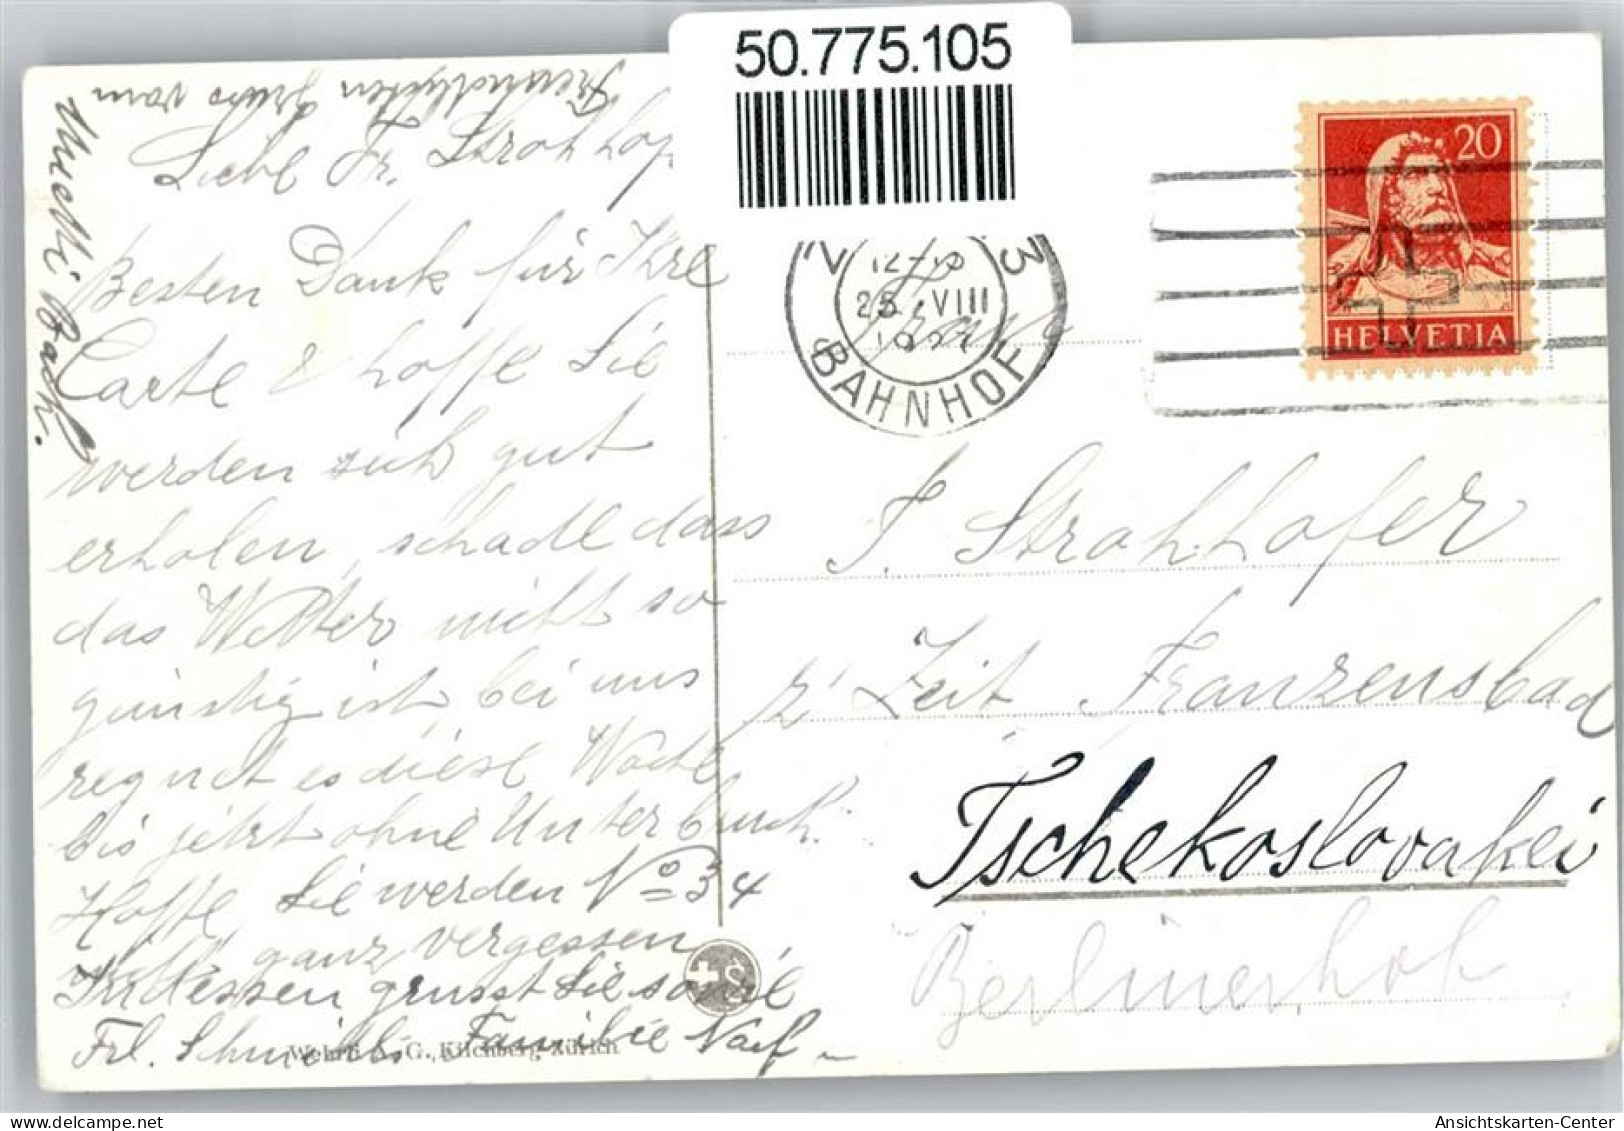 50.775.105
Freundlichen Gruss vom
Muetti Bach.
Liebe Fr. Strohhof
Besten Dank für Ihre
Carte & hoffe Sie
werden sich gut
erholen, schade dass
das Wetter nicht so
günstig ist, bei uns
regnet es diese Woche
bis jetzt ohne Unterbruch.
Hoffe, Sie werden No 34
nicht ganz vergessen
Indessen grüsst Sie sowie
Frl. Schneebli Familie Naef
Wehrli A. G., Kilchberg-Zürich
12-13
3
25. VIII
1927
BAHNHOF
20
HELVETIA
Frau
F. Strohhofer
z' Zeit Franzensbad
Tschekoslovakei
Berlinerhof
Ansichtskarten-Center